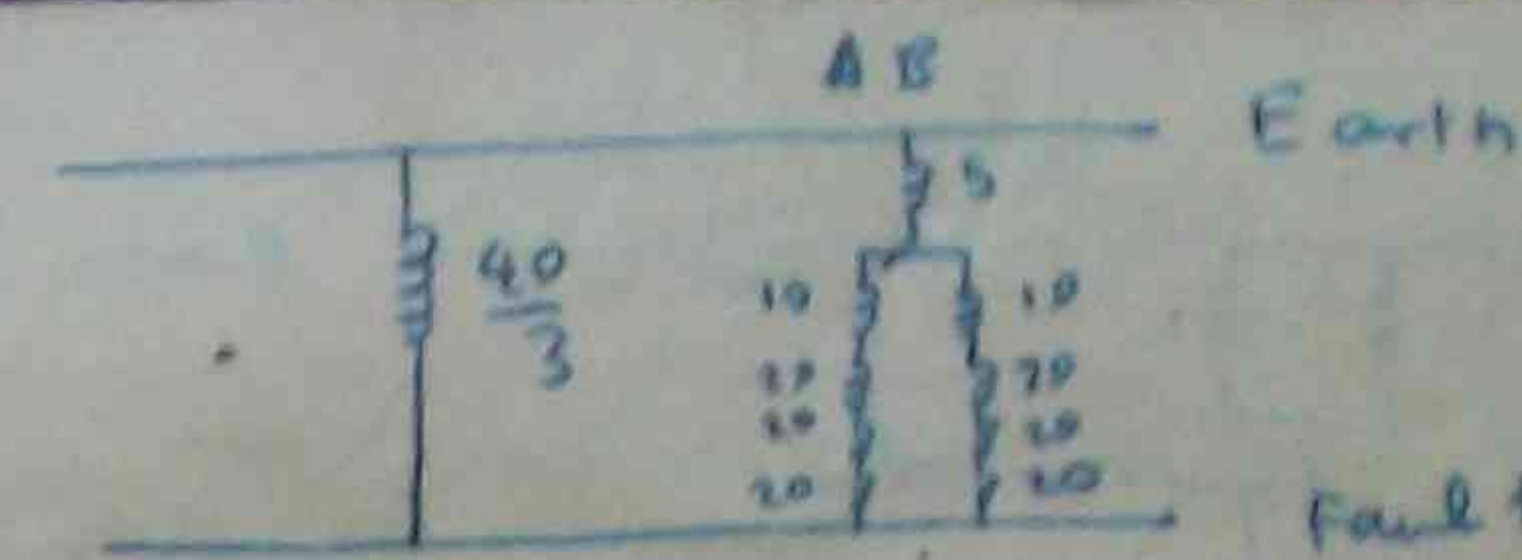 A B
Earth
5
40
3
10 10
20 20
20 20
20 20
Fault